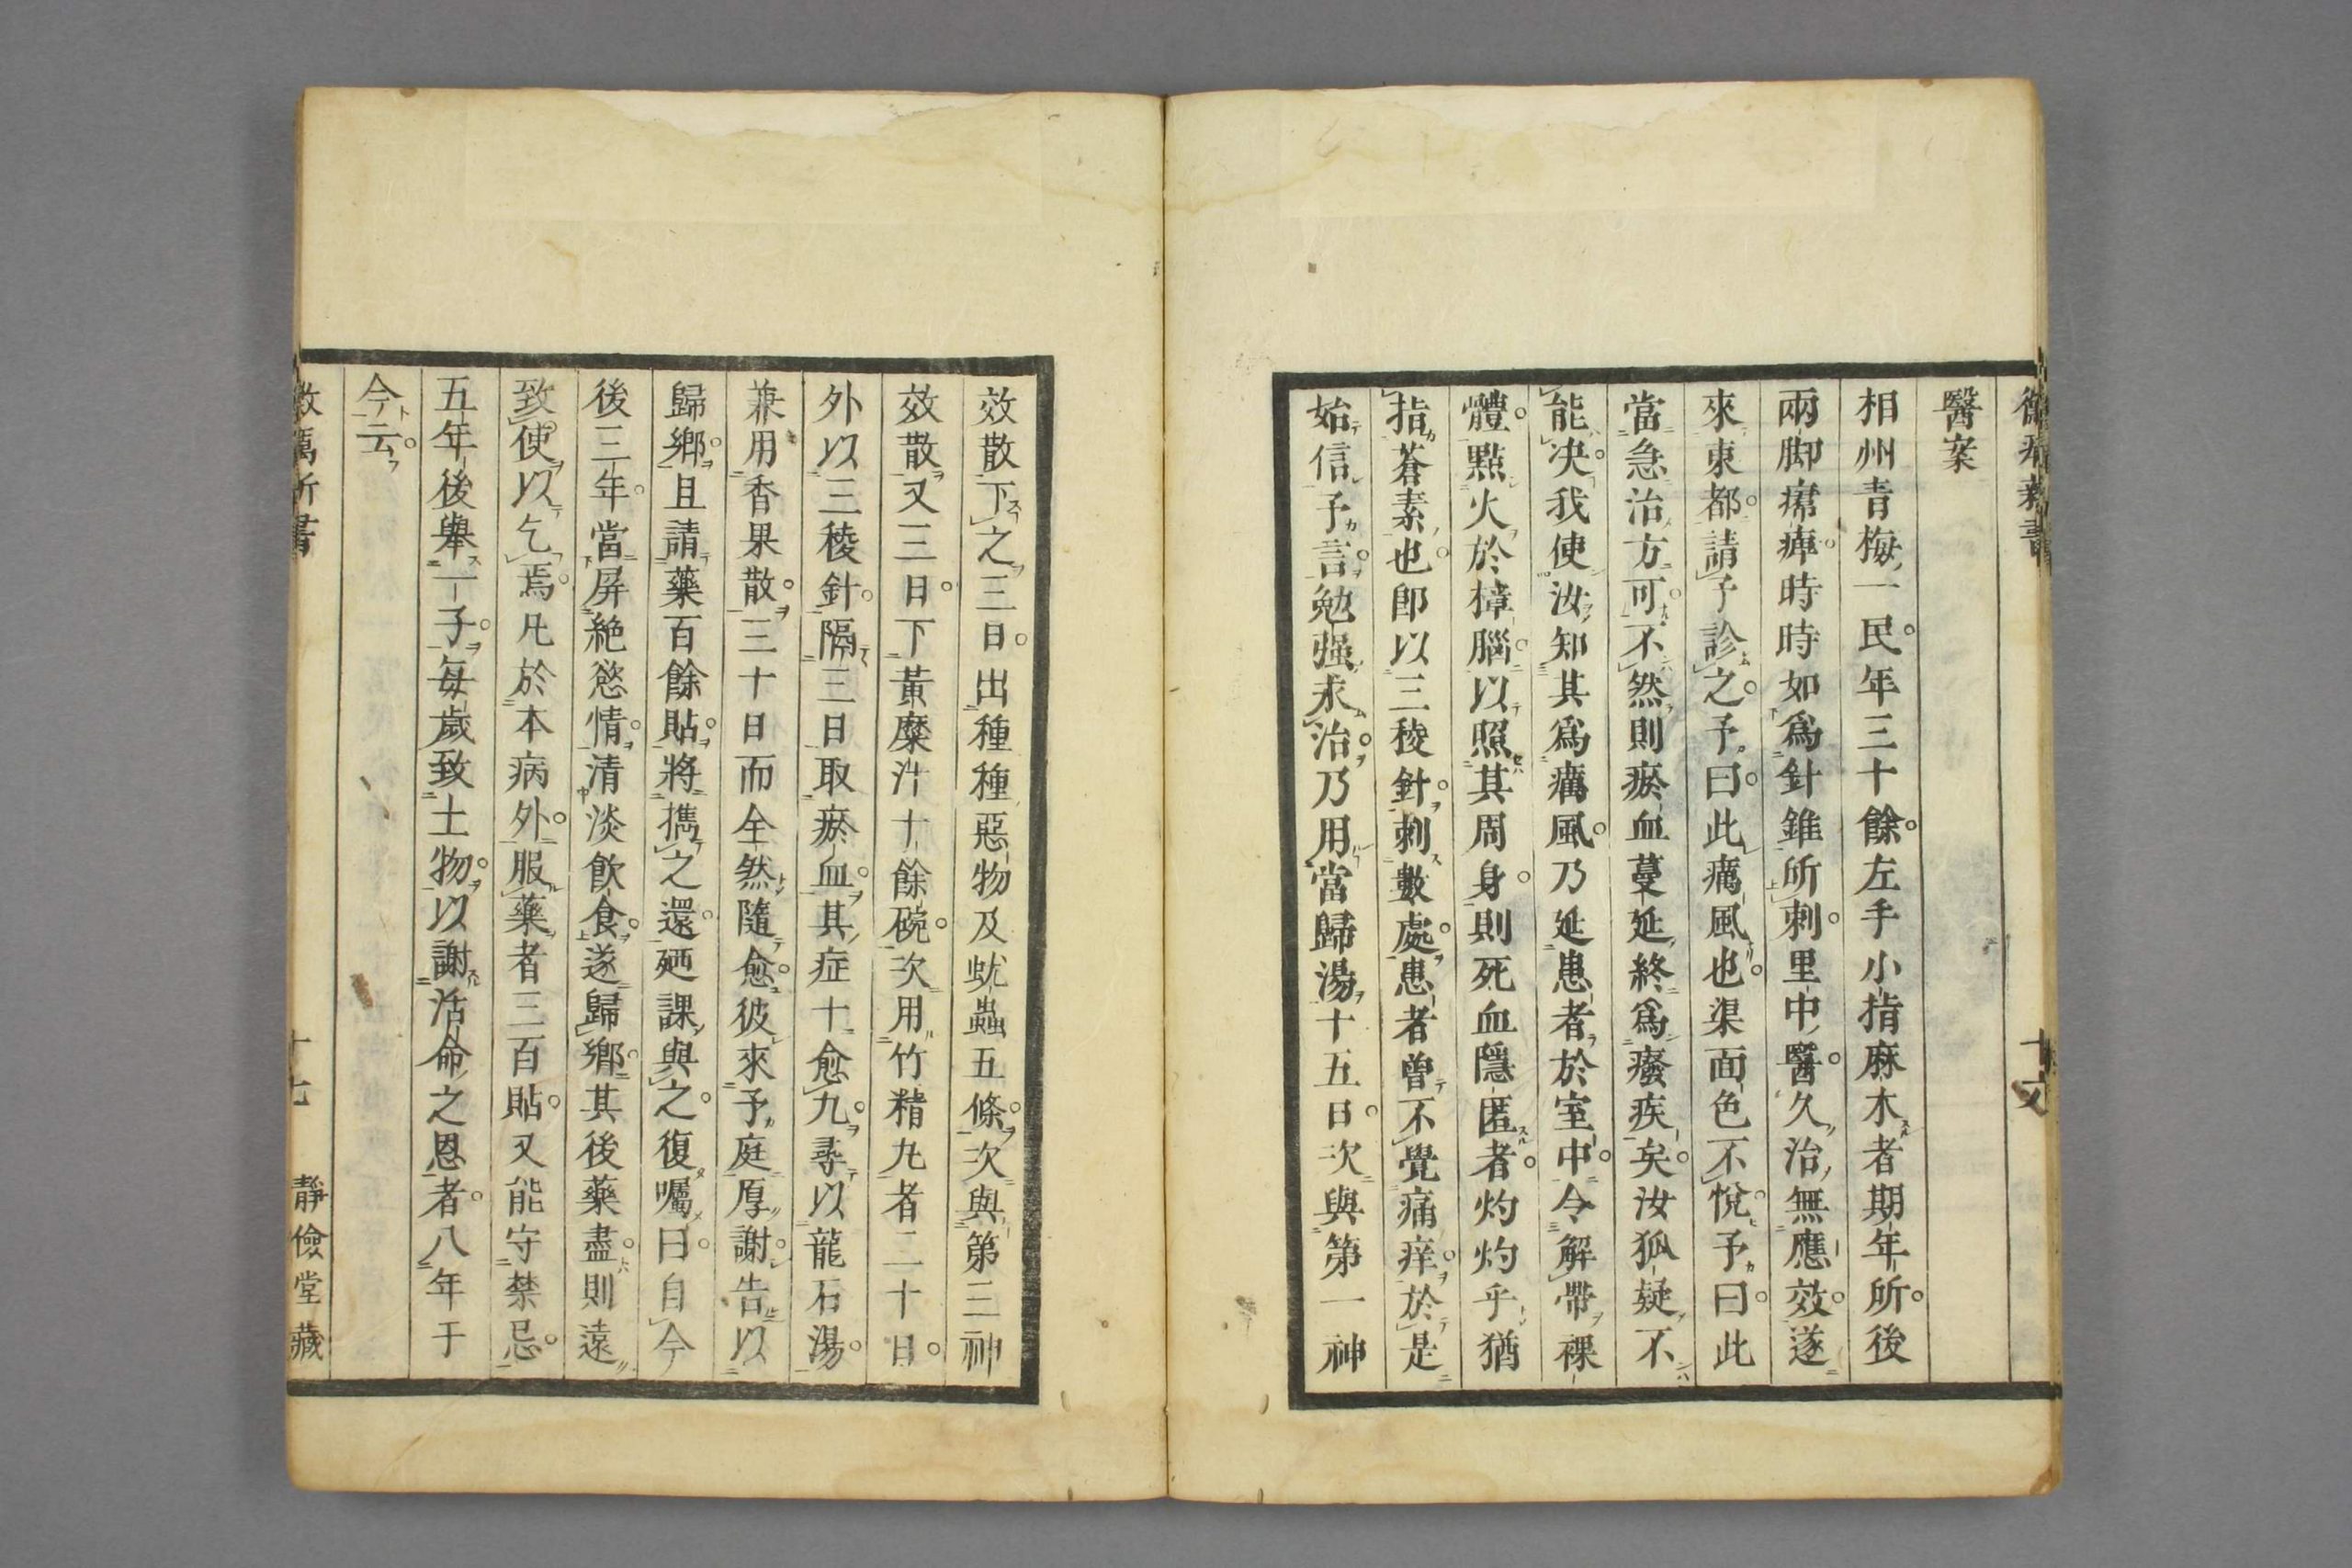 醫案
相州青梅一民年三十餘左手小指麻木者期年所後
兩脚㿏痺時時如爲針錐所刺里中醫久治無應效遂
來東都請予診之予曰此癘風也渠面色不悅予曰此
當急治方可不然則瘀血蔓延終爲癈疾矣汝狐疑不
能决我使汝知其爲癘風乃延患者於室中令解帶裸
體點火於樟腦以照其周身則死血隱匿者灼灼乎猶
指蒼素也卽以三稜針刺數處患者曾不覺痛痒於是
始信予言勉强求治乃用當歸湯十五日次與第一神
效散下之三日出種種惡物及蚘蟲五條次與第三神
效散又三日下黃糜汁十餘碗次用竹精丸者二十日
外以三稜針隔三日取瘀血其症十愈九尋以龍石湯
兼用香果散三十日而全然隨愈彼來予庭厚謝告以
歸鄕且請藥百餘貼將攜之還廼課與之復囑曰自今
後三年當屏絶慾情清淡飮食遂歸鄕其後藥盡則遠
致使以乞焉凡於本病外服藥者三百貼又能守禁忌
五年後舉一子每歲致土物以謝活命之恩者八年于
今云
十七
靜儉堂藏